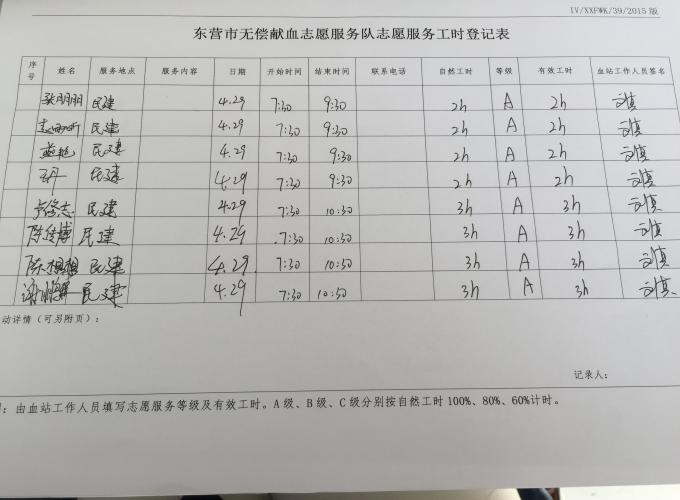 IV/XXFWK/39/2015 版
东营市无偿献血志愿服务队志愿服务工时登记表
序号 姓名 服务地点 服务内容 日期 开始时间 结束时间 联系电话 自然工时 等级 有效工时 血站工作人员签名
张朋朋 民建 4.29 7:30 9:30 2h A 2h
民建 4.29 7:30 9:30 2h A 2h
民建 4.29 7:30 9:30 2h A 2h
民建 4.29 7:30 9:30 2h A 2h
民建 4.29 7:30 10:30 3h A 3h
民建 4.29 7:30 10:30 3h A 3h
陈想想 民建 4.29 7:30 10:30 3h A 3h
民建 4.29 7:30 10:30 3h A 3h
动详情（可另附页）：
记录人：
：由血站工作人员填写志愿服务等级及有效工时。A 级、B 级、C 级分别按自然工时 100%、80%、60%计时。